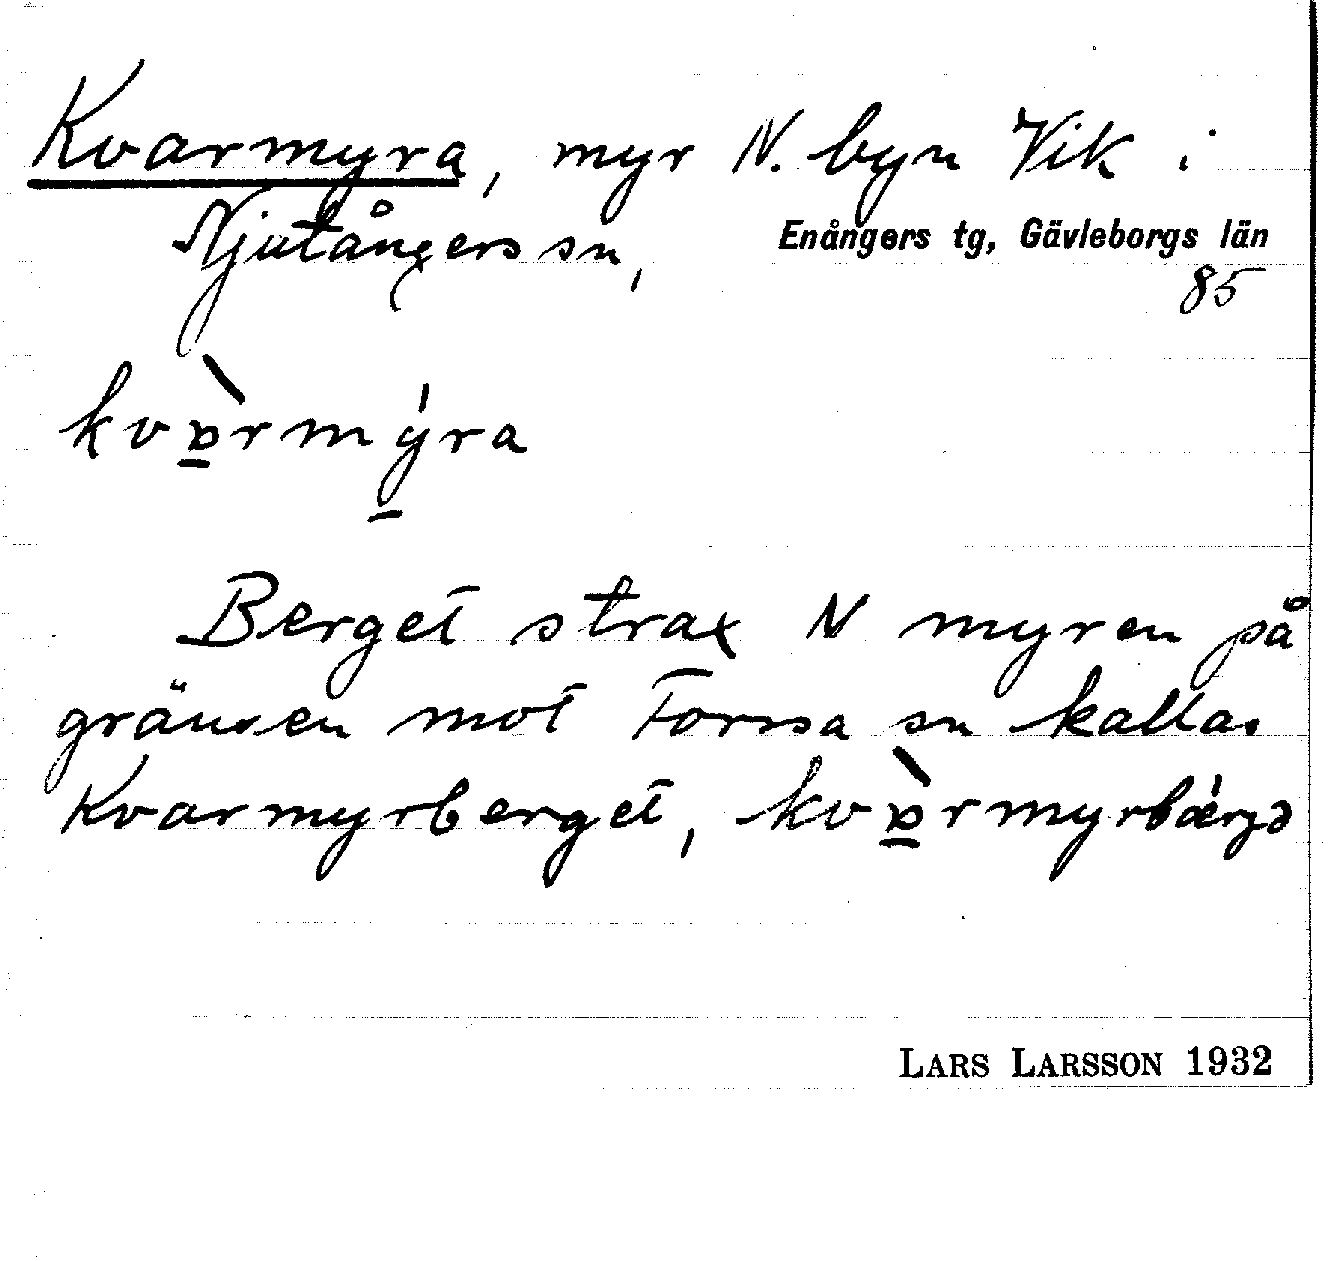 Kvarmyra, myr N. byn Vik i
Njutångers sn, Enångers tg, Gävleborgs län
85
kvɒ̠̀rmý̠ra
Berget strax N myren på
gränsen mot Forssa sn kallas
Kvarmyrberget, kvɒ̠̀rmyrbǽrʒə
LARS LARSSON 1932